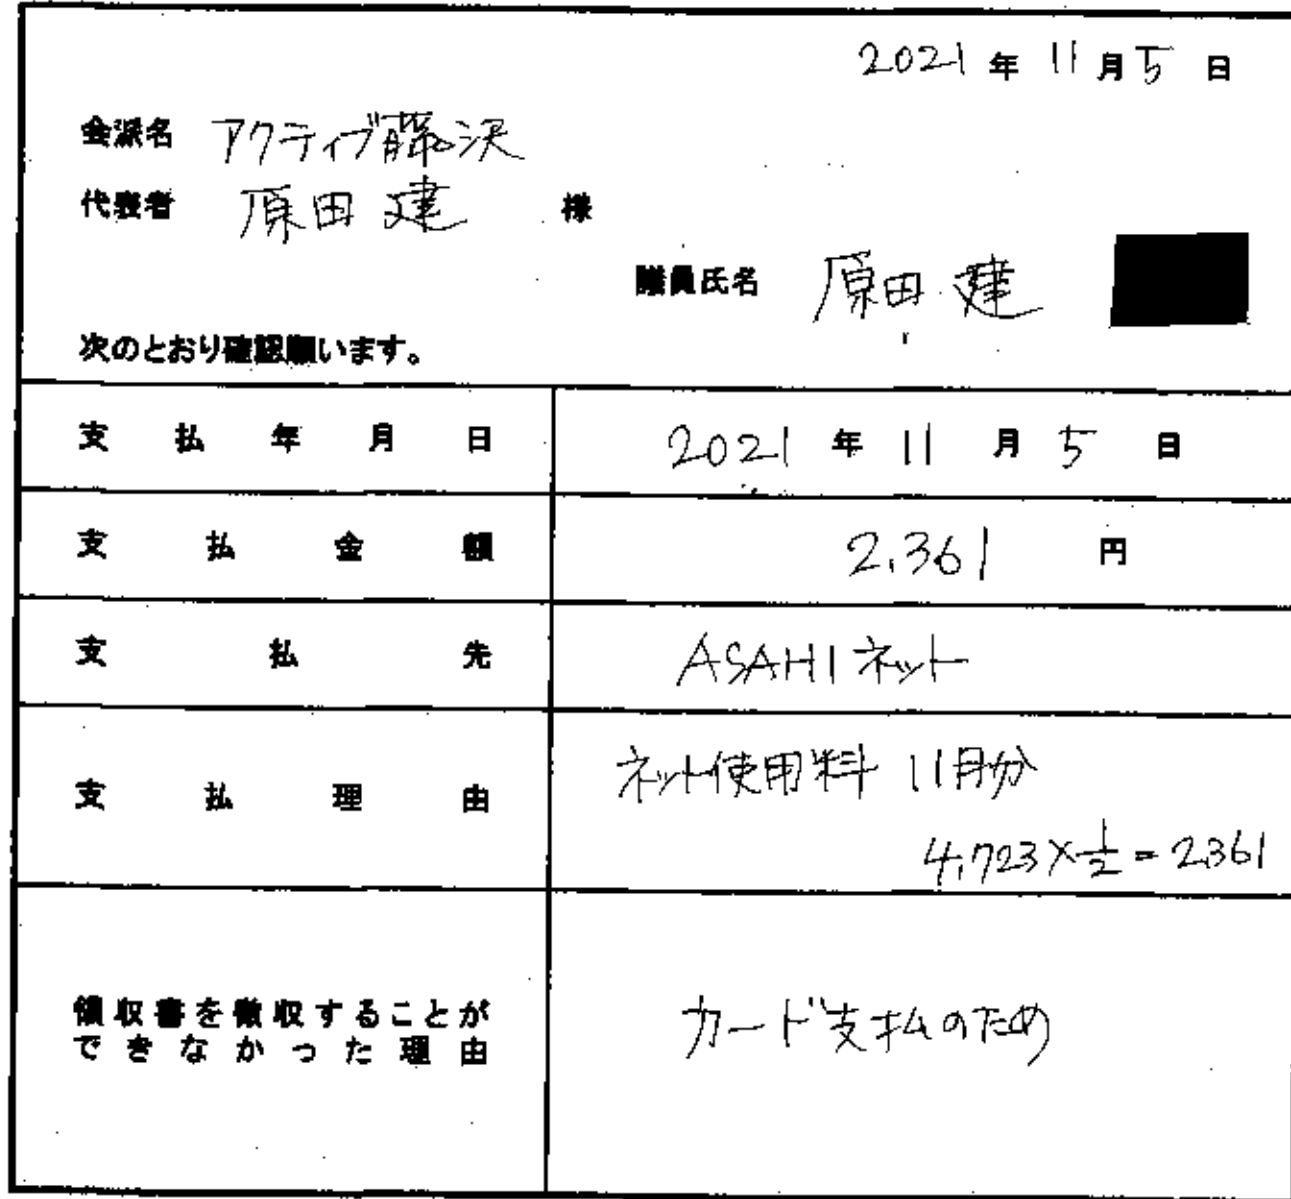 2021 年 11 月 5 日
会派名 アクティブ藤沢
代表者 原田 建 様
議員氏名 原田 建
次のとおり確認願います。
支払年月日 2021 年 11 月 5 日
支払金額 2,361 円
支払先 ASAHIネット
支払理由 ネット使用料 11月分
4,723×1/2=2361
領収書を徴収することが
できなかった理由
カード支払のため